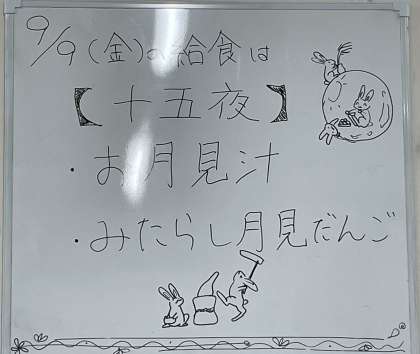 9/9(金)の給食は
【十五夜】
・お月見汁
・みたらし月見だんご